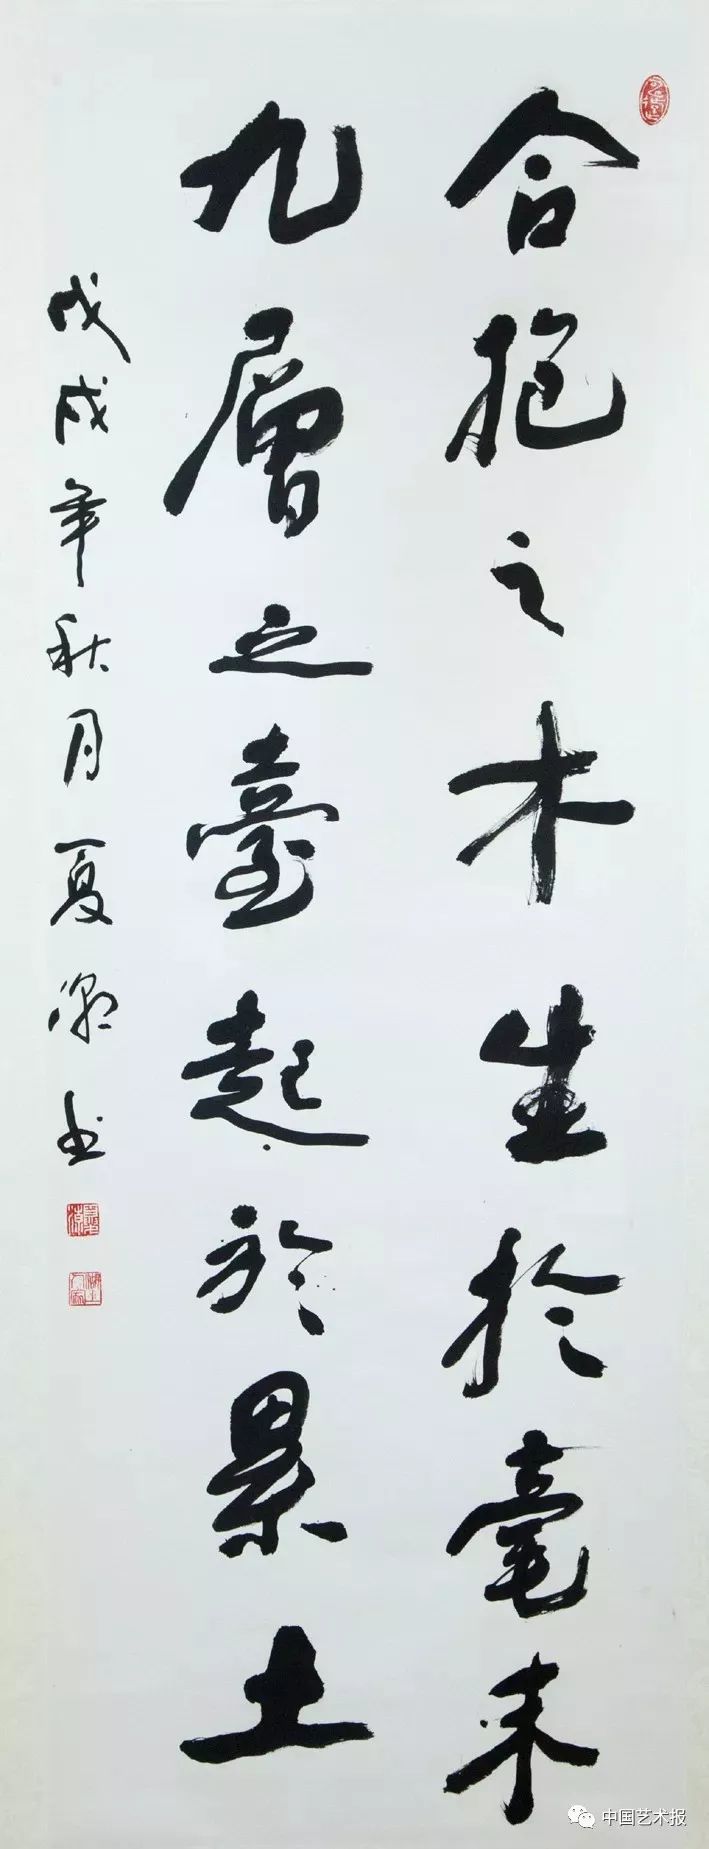 合抱之木生於毫末
九層之臺起於累土
戊戌年秋月夏潮书
中国艺术报